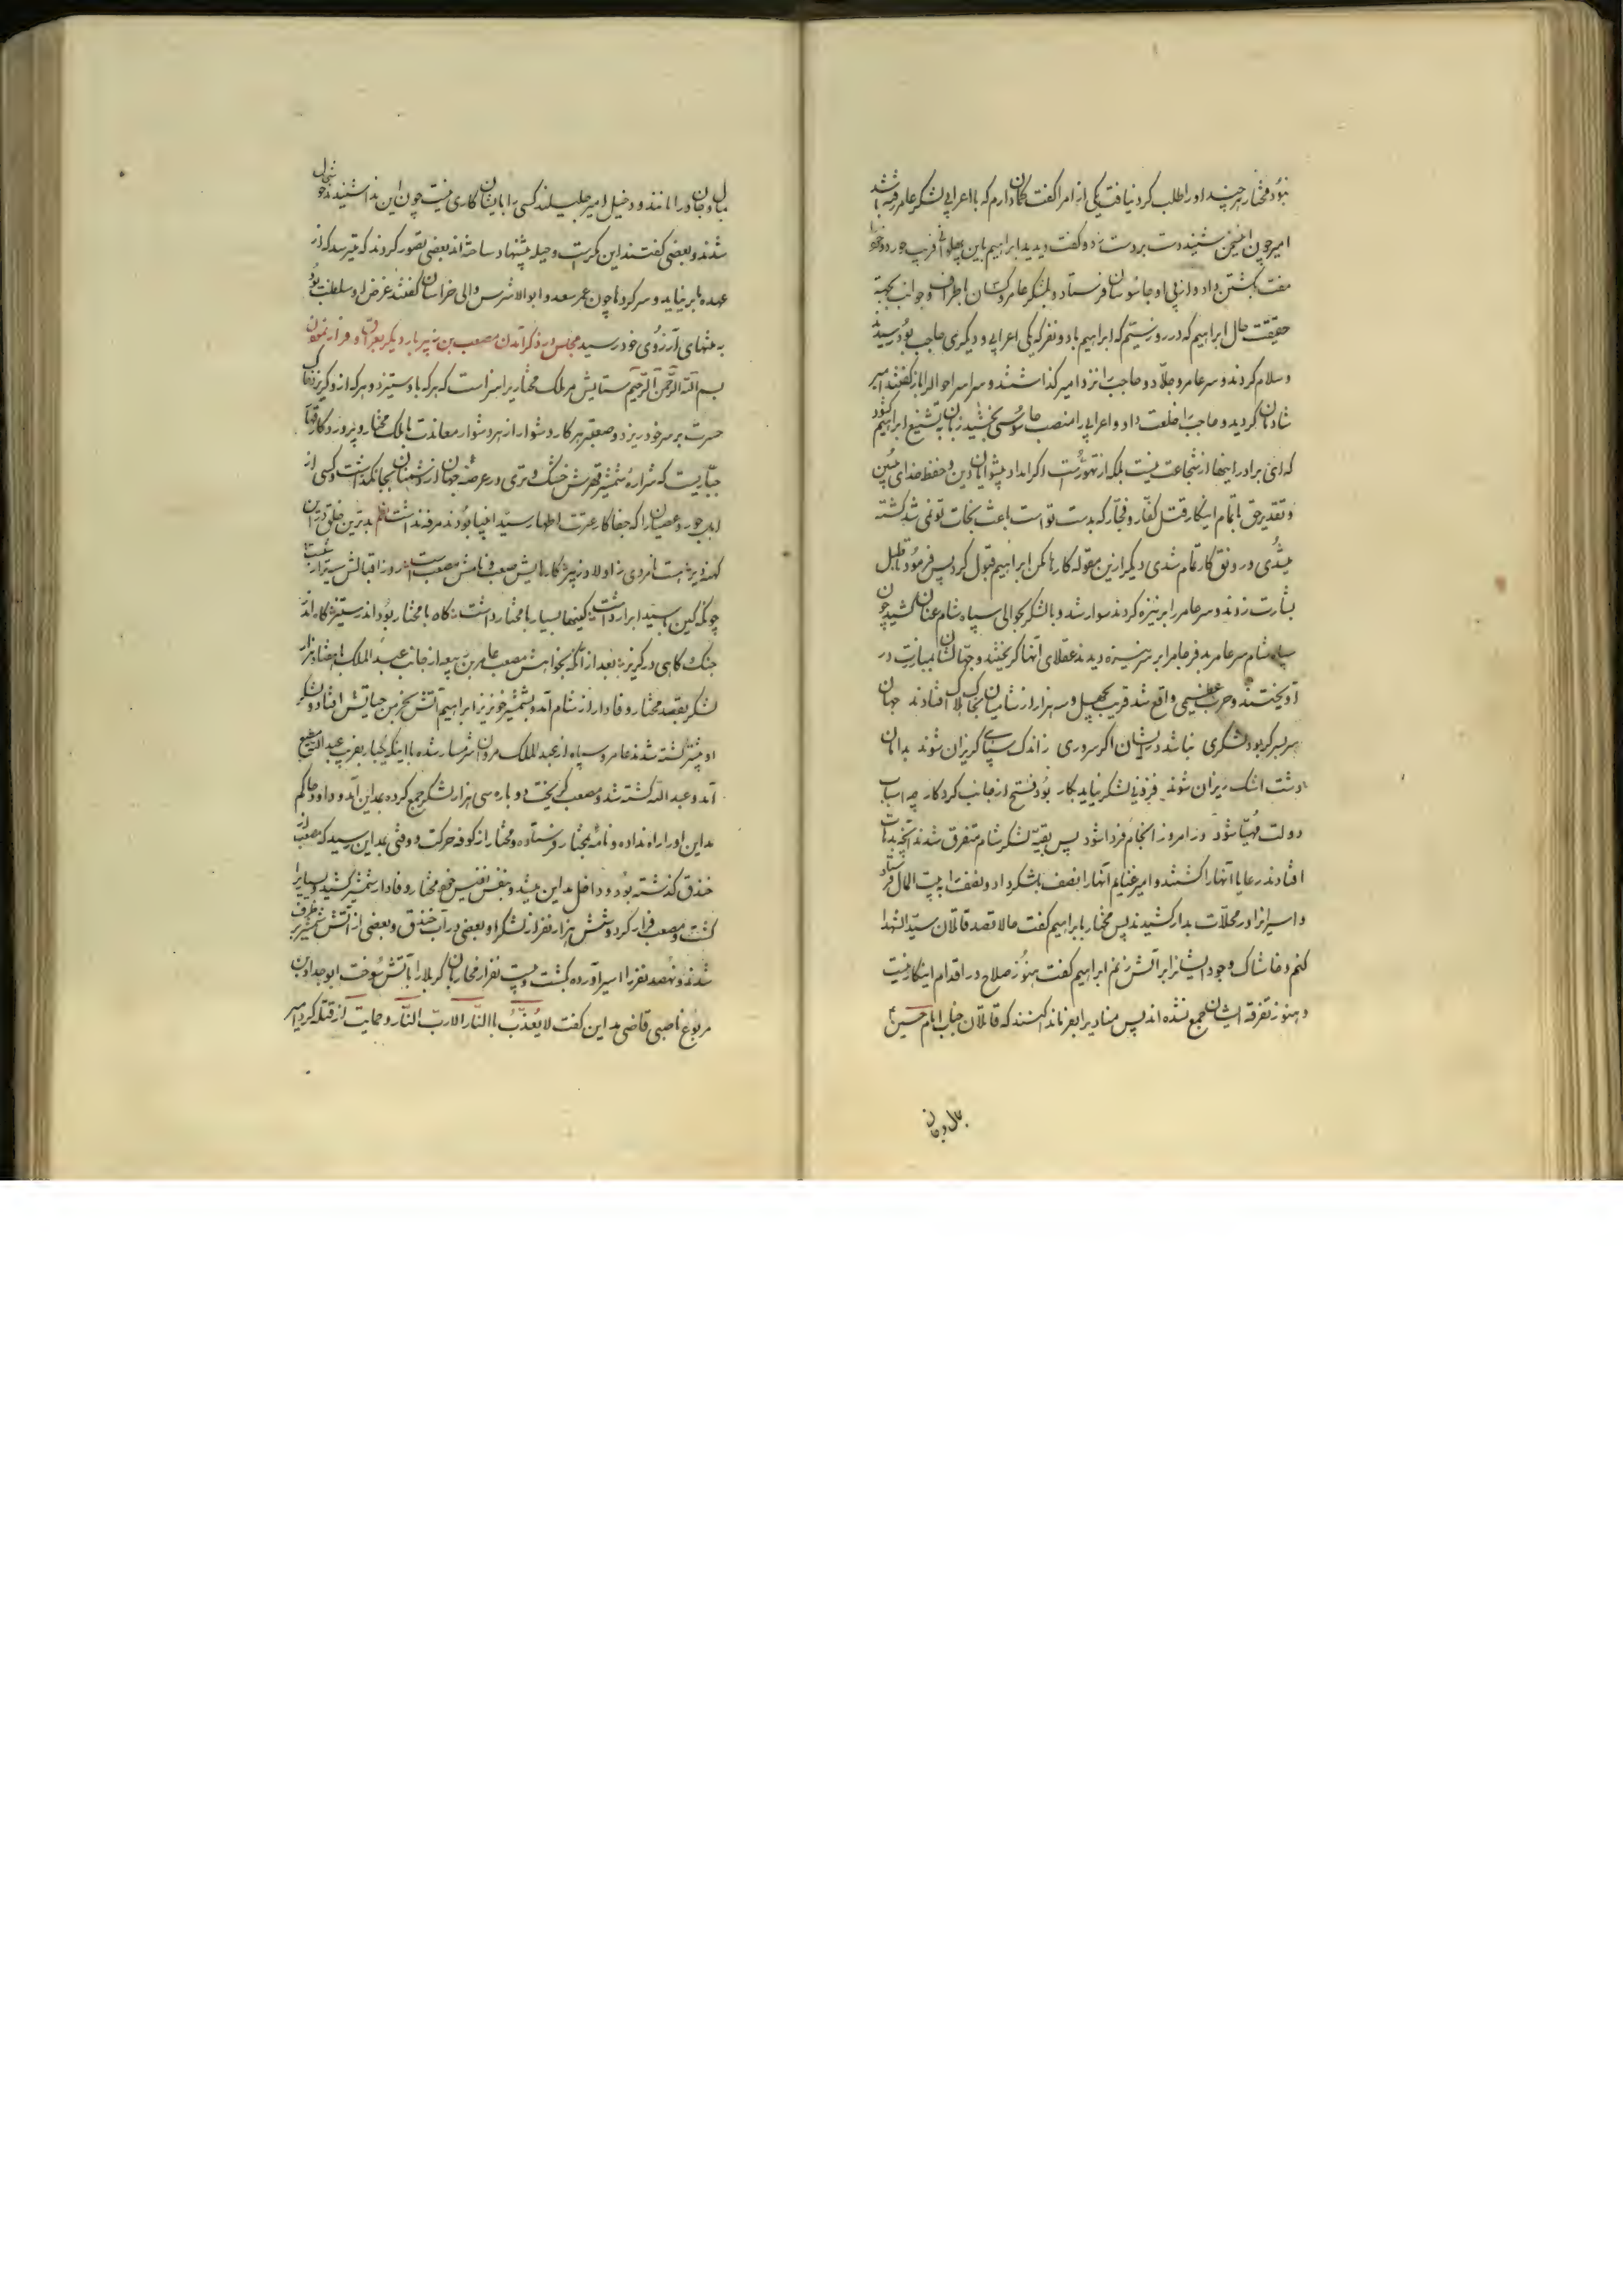 نبود مختار هر چند او را طلب کرد نیافت یکی از امرا گفت گمان دارم که با اعرابی بلشکر عامر رفته باشد
امیر چون این سخن شنید دست بر دست زد و گفت دیدید ابراهیم باین پهلوانی فریب خورد و خود را
مفت بکشتن داد و از پی او جاسوسان فرستاد و لشکر عامر و کسان اطراف و جوانب بجهة
حقیقت حال ابراهیم که در روز ستیم که ابراهیم با دو نفر که یکی اعرابی و دیگری حاجب بود رسیدند
و سلام کردند و سر عامر و جلاد و حاجب را نزد امیر گذاشتند و سراسر احوال را باز گفتند امیر
شادمان گردید و حاجب را خلعت داد و اعرابی را منصب جاسوسی بخشید زبان به تشنیع ابراهیم گشود
که ای برادر اینها از شجاعت نیست بلکه از تهور است اگر امداد پیشوایان دین و حفظ خدای مبین
و تقدیر حق باتمام اینکار قتل کفار و فجار که بدست تو است باعث نجات تو نمی شد کشته
میشدی و رونق کار تمام شدی دیگر ازین مقوله کارها مکن ابراهیم قبول کرد پس فرمود تا طبل
بشارت زدند و سر عامر را بر نیزه کردند سوار شد و با لشکر بحوالی سپاه شام عنان کشید چون
سپاه شام سر عامر بد فرجام را بر سر نیزه دیدند عقلای آنها گریختند و جهالشان بمبارزت در
آویختند و حرب عظیمی واقع شد قریب بچهل و سه هزار از شامیان بخاک هلاک افتادند جهان
سربسر گر بود لشکری نباشد در ایشان اگر سروری ز اندک سپاهی گریزان شوند بدامان
دشت اشک ریزان شوند فزونی لشکر نیاید بکار بود فتح از جانب کردگار چه اسباب
دولت مهیا شود در امروز انجام فردا شود پس بقیه لشکر شام متفرق شدند آنچه بدهات
افتادند رعایا آنها را کشتند و امیر غنایم آنها را نصف بلشکر داد و نصف را به بیت المال فرستاد
و اسیران را در محلات بدار کشیدند پس مختار بابراهیم گفت حالا قصد قاتلان سید الشهدا
کنم و خاشاک وجود ایشانرا بر آتش زنم ابراهیم گفت هنوز صلاح در اقدام اینکار نیست
و هنوز تفرقه ایشان جمع نشده اند پس منادی را بفرما ندا کنند که قاتلان جناب امام حسین ع
بمال و جان
بمال و جان در امانند و دخیل امیر جلیلند کسی را با ایشان کاری نیست چون این ندا شنیدند خوشحال
شدند و بعضی گفتند این مکر است و حیله پیشنهاد ساخته اند بعضی تصور کردند که میترسد که از
عهده ما بر نیاید و سر کردها چون عمر سعد و ابوالاشرس والی خراسان گفتند غرض او سلطنت بود
بمنتهای آرزوی خود رسید مجلس در ذکر آمدن مصعب بن زبیر بار دیگر بعراق و فرار نمودن
بسم الله الرحمن الرحیم ستایش مر ملک مختار یرا سزاست که هر که با او ستیزد و هر که از او گریزد خاک
حسرت بر سر خود ریزد و صعبتر هر کار دشوار از هر دشوار معاندت با ملک مختار و پروردگار قهار
جباریست که شراره شمشیر قهرش خشک و تری در عرصه جهان از دشمنان بجا نگذاشت و کسی از
اهل جور و عصیان را که جفا کار عترت اطهار سید انبیا بودند مرفه نداشت نظم بدترین خلق در این
کهنه دیر هست نامردی ز اولاد زبیر کارهایش صعب و نامش مصعب است روز اقبالش سیه تر از شب است
چونکه کین سید ابرار داشت کینها بسیار با مختار داشت گاه با مختار بود اندر ستیز گاه اندر
جنگ و گاهی در گریز بعد از آنکه بخواهش مصعب عامر بن ربیعه از جانب عبد الملک با هفتاد هزار
لشکر بقصد مختار وفادار از شام آمد و بشمشیر خونریز ابراهیم آتش بخرمن حیاتش افتاد و لشکر
او بیشتر کشته شدند عامر و سپاه از عبد الملک مروان شرمسار شده با اینکه یکبار بفریب عبد الله مطیع
آمد و عبد الله کشته شد و مصعب گریخت دوباره سی هزار لشکر جمع کرده بمداین آمد و داود حاکم
مداین او را راه نداده و نامه بمختار فرستاده و مختار از کوفه حرکت و وقتی بمداین رسید که مصعب از
خندق گذشته بود و داخل مداین میشد و بنفس نفیس خود مختار وفادار شمشیر کشید و بسیار را
کشت و مصعب فرار کرد و شش هزار نفر از لشکر او بعضی در آب خندق و بعضی از آتش شمشیر بر طرف
شدند و نهصد نفر را اسیر آورده بکشت و بیست نفر از محاربان کربلا را بآتش سوخت ابو حداد بن
مربوع ناصبی قاضی مداین گفت لا یعذب بالنار الا رب النار و حمایت از قتله کرد امیر